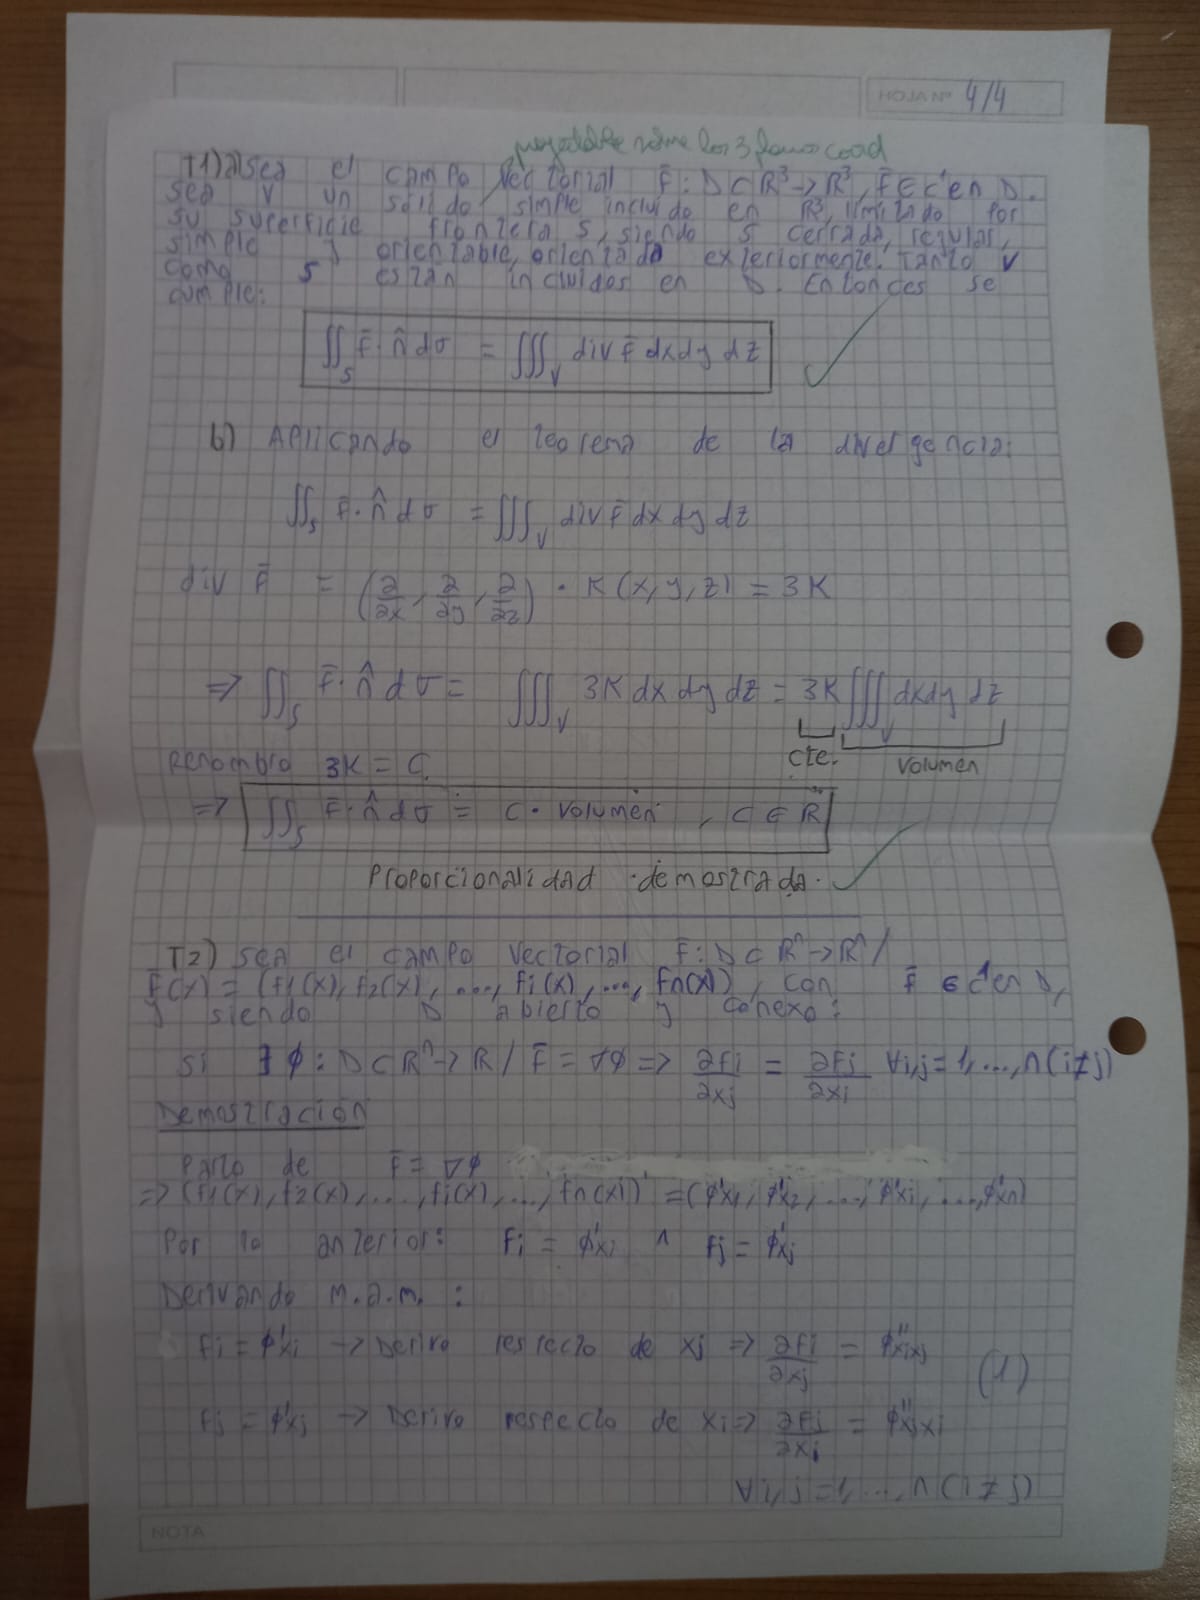 HOJA Nº 4/4
proyectable sobre los 3 planos coord
T1)a) Sea el campo vectorial F̄: D⊂R³→R³, F̄ ∈ C' en D.
sea V un sólido simple incluido en R³, limitado por
su superficie frontera S, siendo S cerrada, regular,
simple y orientable, orientada exteriormente. Tanto V
como S están incluidos en D. Entonces se
cumple:
∬_S F̄·n̂ dσ = ∭_V div F̄ dx dy dz
b) Aplicando el teorema de la divergencia:
∬_S F̄·n̂ dσ = ∭_V div F̄ dx dy dz
div F̄ = (∂/∂x, ∂/∂y, ∂/∂z) · K(x,y,z) = 3K
⇒ ∬_S F̄·n̂ dσ = ∭_V 3K dx dy dz = 3K ∭_V dx dy dz
cte. volumen
Renombro 3K = C
⇒ ∬_S F̄·n̂ dσ = C · volumen, C ∈ R
Proporcionalidad demostrada.
T2) Sea el campo vectorial F̄: D⊂Rⁿ→Rⁿ /
F̄(x) = (f1(x), f2(x), ..., fi(x), ..., fn(x)), con F̄ ∈ C¹ en D,
y siendo D abierto y conexo:
Si ∃ φ: D⊂Rⁿ→R / F̄ = ∇φ ⇒ ∂fi/∂xj = ∂fj/∂xi ∀i,j=1,...,n (i≠j)
Demostración
Parto de F̄ = ∇φ
⇒ (f1(x), f2(x), ..., fi(x), ..., fn(x)) = (φ'x1, φ'x2, ..., φ'xi, ..., φ'xn)
Por lo anterior: fi = φ'xi ∧ fj = φ'xj
Derivando m.a.m.:
fi = φ'xi → Derivo respecto de xj ⇒ ∂fi/∂xj = φ''xixj
(1)
fj = φ'xj → Derivo respecto de xi ⇒ ∂fj/∂xi = φ''xjxi
∀i,j=1,...,n (i≠j)
NOTA